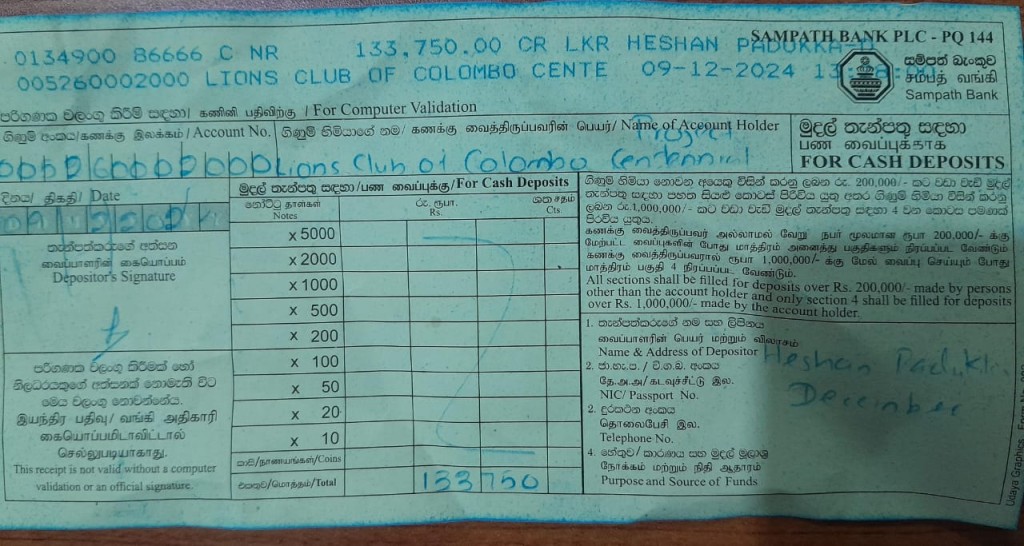 SAMPATH BANK PLC - PQ 144
0134900 86666 C NR 133,750.00 CR LKR HESHAN PADUKKA
005260002000 LIONS CLUB OF COLOMBO CENTE 09-12-2024
සම්පත් බැංකුව
சம்பத் வங்கி
Sampath Bank
පරිගණක වලංගු කිරීම් සඳහා / கணினி பதிவிற்கு / For Computer Validation
ගිණුම් අංකය/கணக்கு இலக்கம்/Account No.
ගිණුම් හිමියාගේ නම/ கணக்கு வைத்திருப்பவரின் பெயர்/ Name of Account Holder
Project
Lions Club of Colombo Centennial
මුදල් තැන්පතු සඳහා
பண வைப்புக்காக
FOR CASH DEPOSITS
දිනය/ திகதி/ Date
තැන්පත්කරුගේ අත්සන
வைப்பாளரின் கையொப்பம்
Depositor's Signature
පරිගණක වලංගු කිරීමක් හෝ
නිලධරයකුගේ අත්සනක් නොමැති විට
මෙය වලංගු නොවන්නේය.
இயந்திர பதிவு/ வங்கி அதிகாரி
கையொப்பமிடாவிட்டால்
செல்லுபடியாகாது.
This receipt is not valid without a computer
validation or an official signature.
මුදල් තැන්පතු සඳහා/பண வைப்புக்கு/For Cash Deposits
නෝට්ටු தாள்கள்
Notes
රු. ரூபா.
Rs.
ශත சதம்
Cts
x 5000
x 2000
x 1000
x 500
x 200
x 100
x 50
x 20
x 10
කාසි/நாணயங்கள்/Coins
එකතුව/மொத்தம்/Total 133750
ගිණුම් හිමියා නොවන අයෙකු විසින් කරනු ලබන රු. 200,000/- කට වඩා වැඩි මුදල්
තැන්පතු සඳහා පහත සියළු කොටස් පිරවිය යුතු අතර ගිණුම් හිමියා විසින් කරනු
ලබන රු.1,000,000/- කට වඩා වැඩි මුදල් තැන්පතු සඳහා 4 වන කොටස පමණක්
පිරවිය යුතුය.
கணக்கு வைத்திருப்பவர் அல்லாமல் வேறு நபர் மூலமான ரூபா 200,000/- க்கு
மேற்பட்ட வைப்புகளின் போது மாத்திரம் அனைத்து பகுதிகளும் நிரப்பப்பட வேண்டும்
கணக்கு வைத்திருப்பவரால் ரூபா 1,000,000/- க்கு மேல் வைப்பு செய்யும் போது
மாத்திரம் பகுதி 4 நிரப்பப்பட வேண்டும்.
All sections shall be filled for deposits over Rs. 200,000/- made by persons
other than the account holder and only section 4 shall be filled for deposits
over Rs. 1,000,000/- made by the account holder.
1. තැන්පත්කරුගේ නම සහ ලිපිනය
வைப்பாளரின் பெயர் மற்றும் விலாசம்
Name & Address of Depositor Heshan
2. ජා.හැ.ප. / වි.ග.බ. අංකය
தே.அ.அ/கடவுச்சீட்டு இல.
NIC/ Passport No. December
2. දුරකථන අංකය
தொலைபேசி இல.
Telephone No.
4. හේතුව/ කාරණය සහ මුදල් මූලාශ්‍ර
நோக்கம் மற்றும் நிதி ஆதாரம்
Purpose and Source of Funds
Udaya Graphics